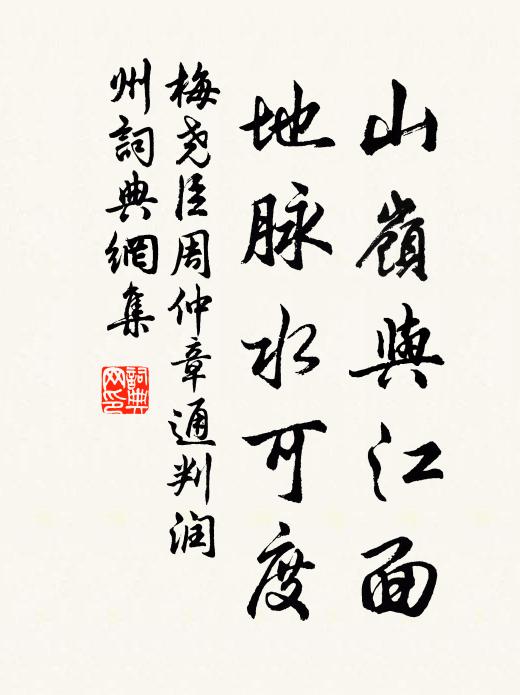 山嶺與江面
地脉水可度
梅尧臣周仲章通判润
州詞典網集
詞典
网印